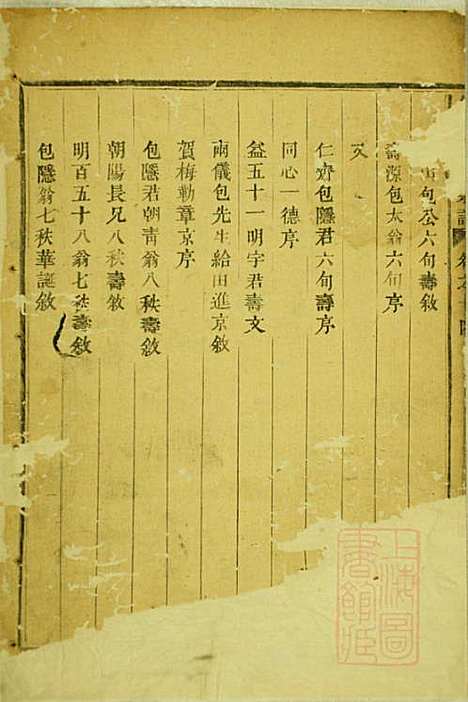 包公六旬壽敘
源包太翁六旬序
文
仁齊包隱君六旬壽序
同心一德序
益五十一明字君壽文
兩儀包先生給田進京敘
賀梅勳章京序
包隱君朝青翁八秩壽敘
朝陽長兄八秩壽敘
明百五十八翁七秩壽敘
包隱翁七秩華誕敘
上海圖書館藏